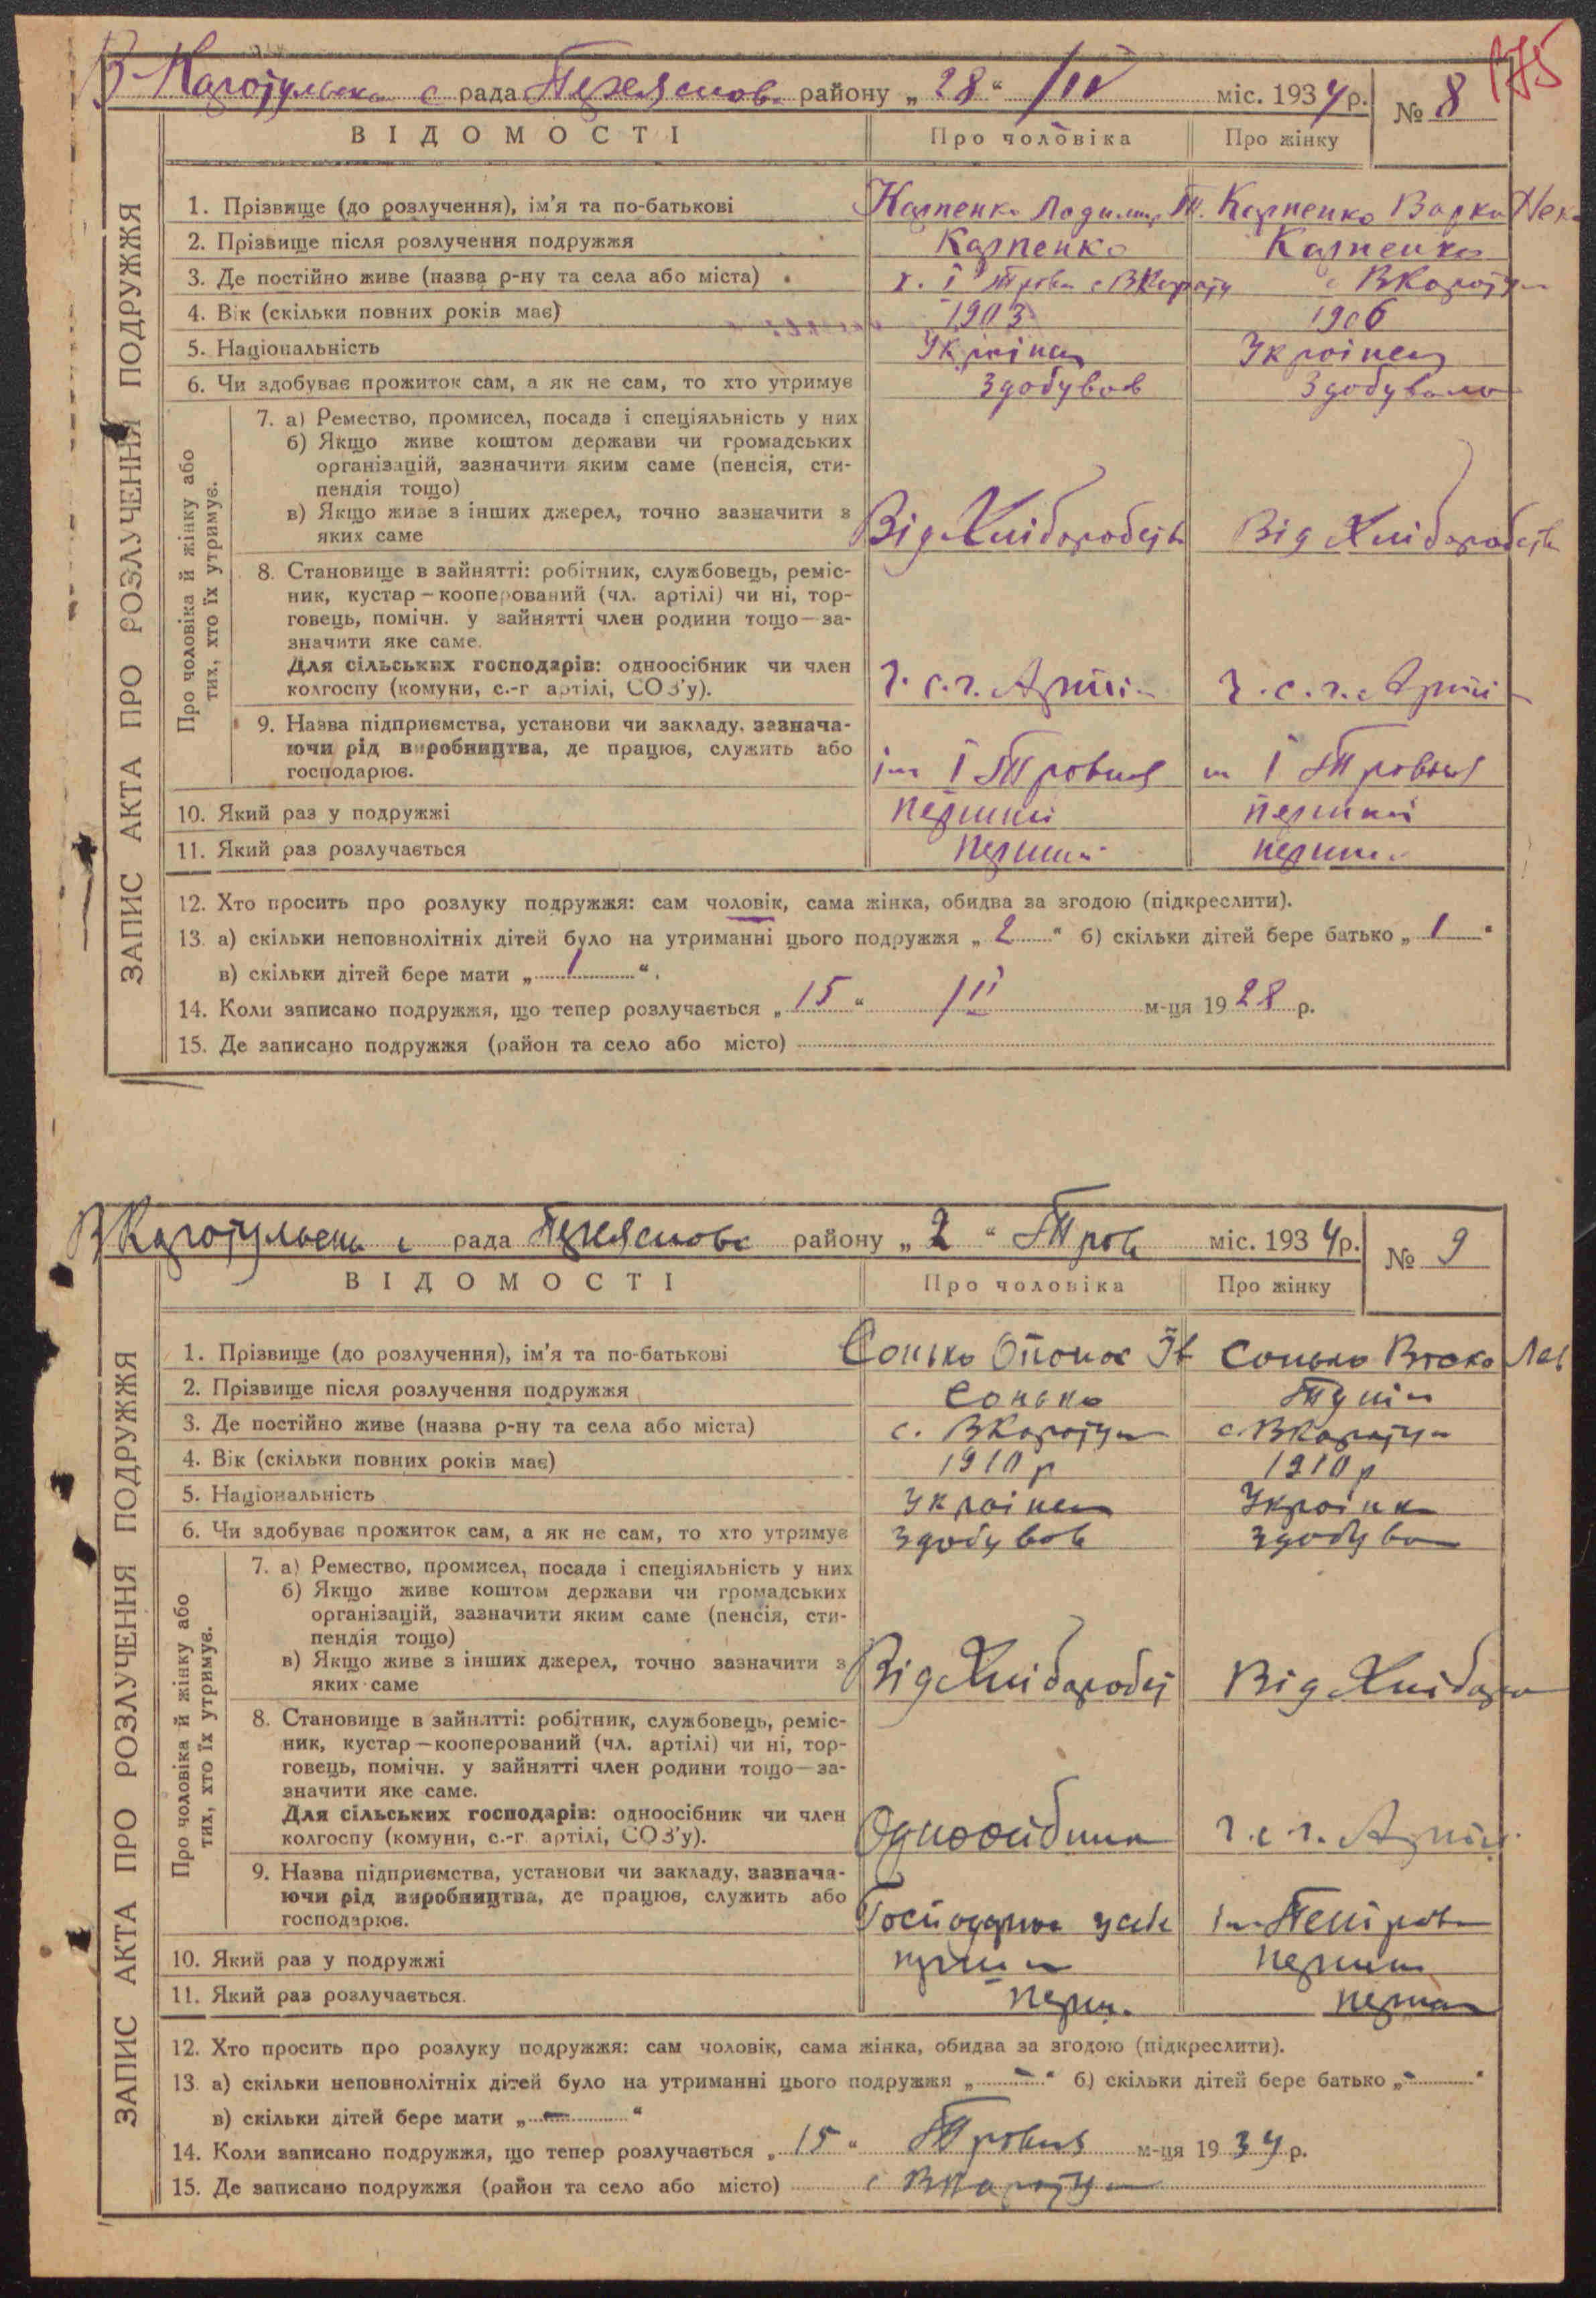 175
В Каратульська с рада Переяслов. району „ 28 “ /IV міс. 1934 р. № 8
ВІДОМОСТІ Про чоловіка Про жінку
ЗАПИС АКТА ПРО РОЗЛУЧЕННЯ ПОДРУЖЖЯ
1. Прізвище (до розлучення), ім'я та по-батькові Карпенко Т. Карпенко Варка
2. Прізвище після розлучення подружжя Карпенко Карпенко
3. Де постійно живе (назва р-ну та села або міста) х. І Травн с ВКарату с ВКарату
4. Вік (скільки повних років має) 1903 1906
5. Національність Українец Українец
6. Чи здобуває прожиток сам, а як не сам, то хто утримує Здобував Здобувала
Про чоловіка й жінку або тих, хто їх утримує.
7. а) Ремество, промисел, посада і спеціяльність у них
б) Якщо живе коштом держави чи громадських
організацій, зазначити яким саме (пенсія, сти-
пендія тощо)
в) Якщо живе з інших джерел, точно зазначити з
яких саме Від Хліборобств Від Хліборобств
8. Становище в зайнятті: робітник, службовець, реміс-
ник, кустар—кооперований (чл. артілі) чи ні, тор-
говець, помічн. у зайнятті член родини тощо—за-
значити яке саме.
Для сільських господарів: одноосібник чи член
колгоспу (комуни, с.-г артілі, СОЗ'у). ч. с. г. Артілі ч. с. г. Артілі
9. Назва підприємства, установи чи закладу, зазнача-
ючи рід виробництва, де працює, служить або
господарює. ім І Травня ім І Травня
10. Який раз у подружжі перший перший
11. Який раз розлучається перший перший
12. Хто просить про розлуку подружжя: сам чоловік, сама жінка, обидва за згодою (підкреслити).
13. а) скільки неповнолітніх дітей було на утриманні цього подружжя „ 2 “ б) скільки дітей бере батько „ 1 “
в) скільки дітей бере мати „ 1 “.
14. Коли записано подружжя, що тепер розлучається „ 15 “ /II м-ця 1928 р.
15. Де записано подружжя (район та село або місто)
ВКаратульська с рада Переяслове району „ 2 “ Трав міс. 1934 р. № 9
ВІДОМОСТІ Про чоловіка Про жінку
ЗАПИС АКТА ПРО РОЗЛУЧЕННЯ ПОДРУЖЖЯ
1. Прізвище (до розлучення), ім'я та по-батькові Сонько Опанас Ів Сонько
2. Прізвище після розлучення подружжя Сонько
3. Де постійно живе (назва р-ну та села або міста) с. ВКарату с. ВКарату
4. Вік (скільки повних років має) 1910 р 1910 р
5. Національність Українец Українк
6. Чи здобуває прожиток сам, а як не сам, то хто утримує здобував здобува
Про чоловіка й жінку або тих, хто їх утримує.
7. а) Ремество, промисел, посада і спеціяльність у них
б) Якщо живе коштом держави чи громадських
організацій, зазначити яким саме (пенсія, сти-
пендія тощо)
в) Якщо живе з інших джерел, точно зазначити з
яких саме Від Хліборобс Від Хлібора
8. Становище в зайнятті: робітник, службовець, реміс-
ник, кустар—кооперований (чл. артілі) чи ні, тор-
говець, помічн. у зайнятті член родини тощо—за-
значити яке саме.
Для сільських господарів: одноосібник чи член
колгоспу (комуни, с.-г артілі, СОЗ'у). Одноосібник ч. с г. Артіл
9. Назва підприємства, установи чи закладу, зазнача-
ючи рід виробництва, де працює, служить або
господарює. Господарює у себе ім
10. Який раз у подружжі перший перший
11. Який раз розлучається. перш. перша
12. Хто просить про розлуку подружжя: сам чоловік, сама жінка, обидва за згодою (підкреслити).
13. а) скільки неповнолітніх дітей було на утриманні цього подружжя „ — “ б) скільки дітей бере батько „ - “
в) скільки дітей бере мати „ — “
14. Коли записано подружжя, що тепер розлучається „ 15 “ Травня м-ця 1934 р.
15. Де записано подружжя (район та село або місто) с ВКарату